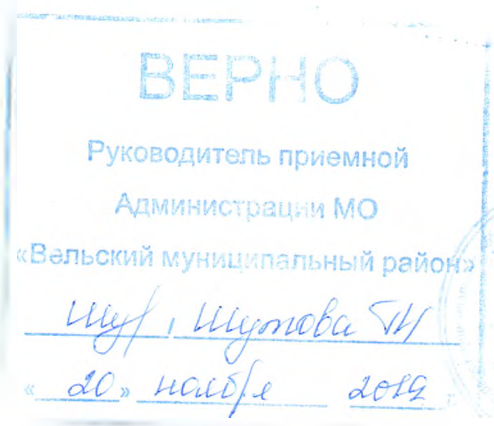 ВЕРНО
Руководитель приемной
Администрации МО
«Вельский муниципальный район»
Шутова ТН
«20» ноября 2019 г.